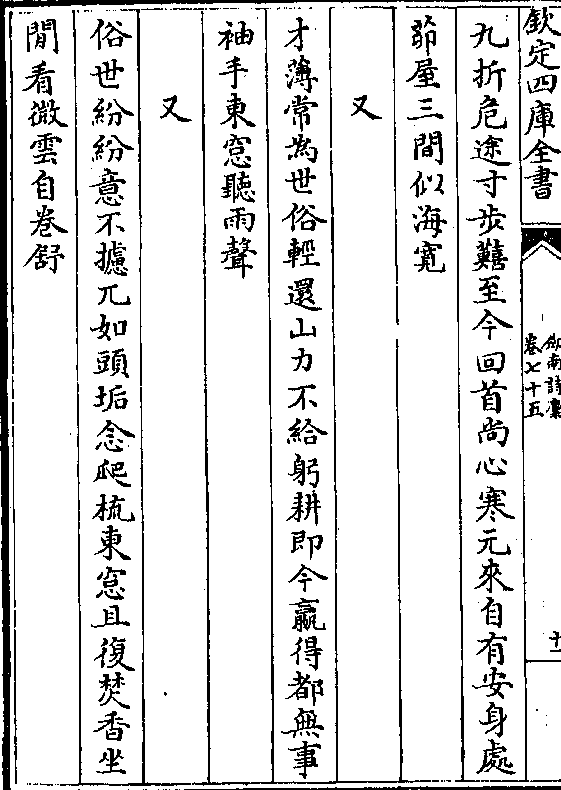 欽定四庫全書
劍南詩稾
卷七十五
九折危途寸步艱至今回首尚心寒元來自有安身處
茆屋三間似海寬
又
才薄常為世俗輕還山力不給躬耕即今贏得都無事
袖手東窓聽雨聲
又
俗世紛紛意不攄兀如頭垢念爬梳東窓且復焚香坐
閒看微雲自卷舒